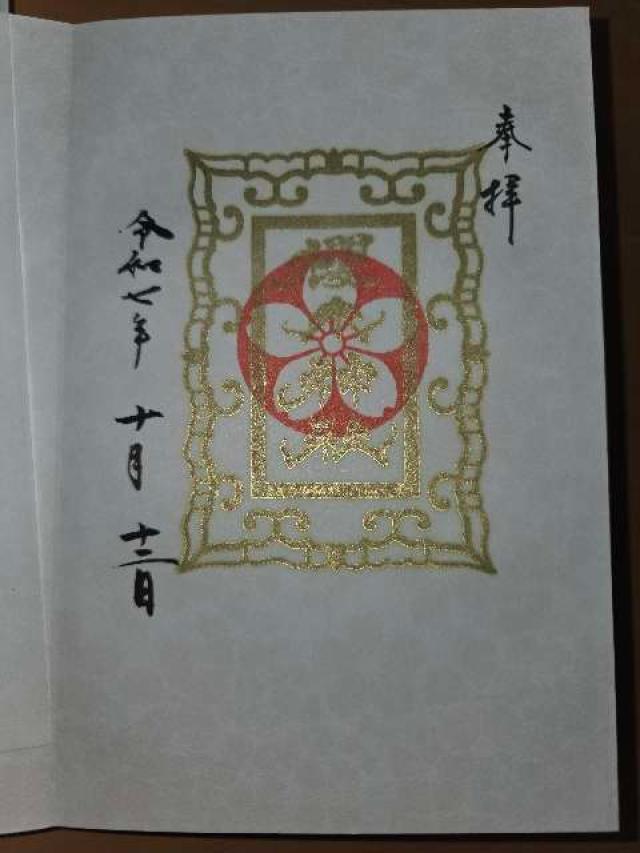 奉拝
令和七年 十月 十二日